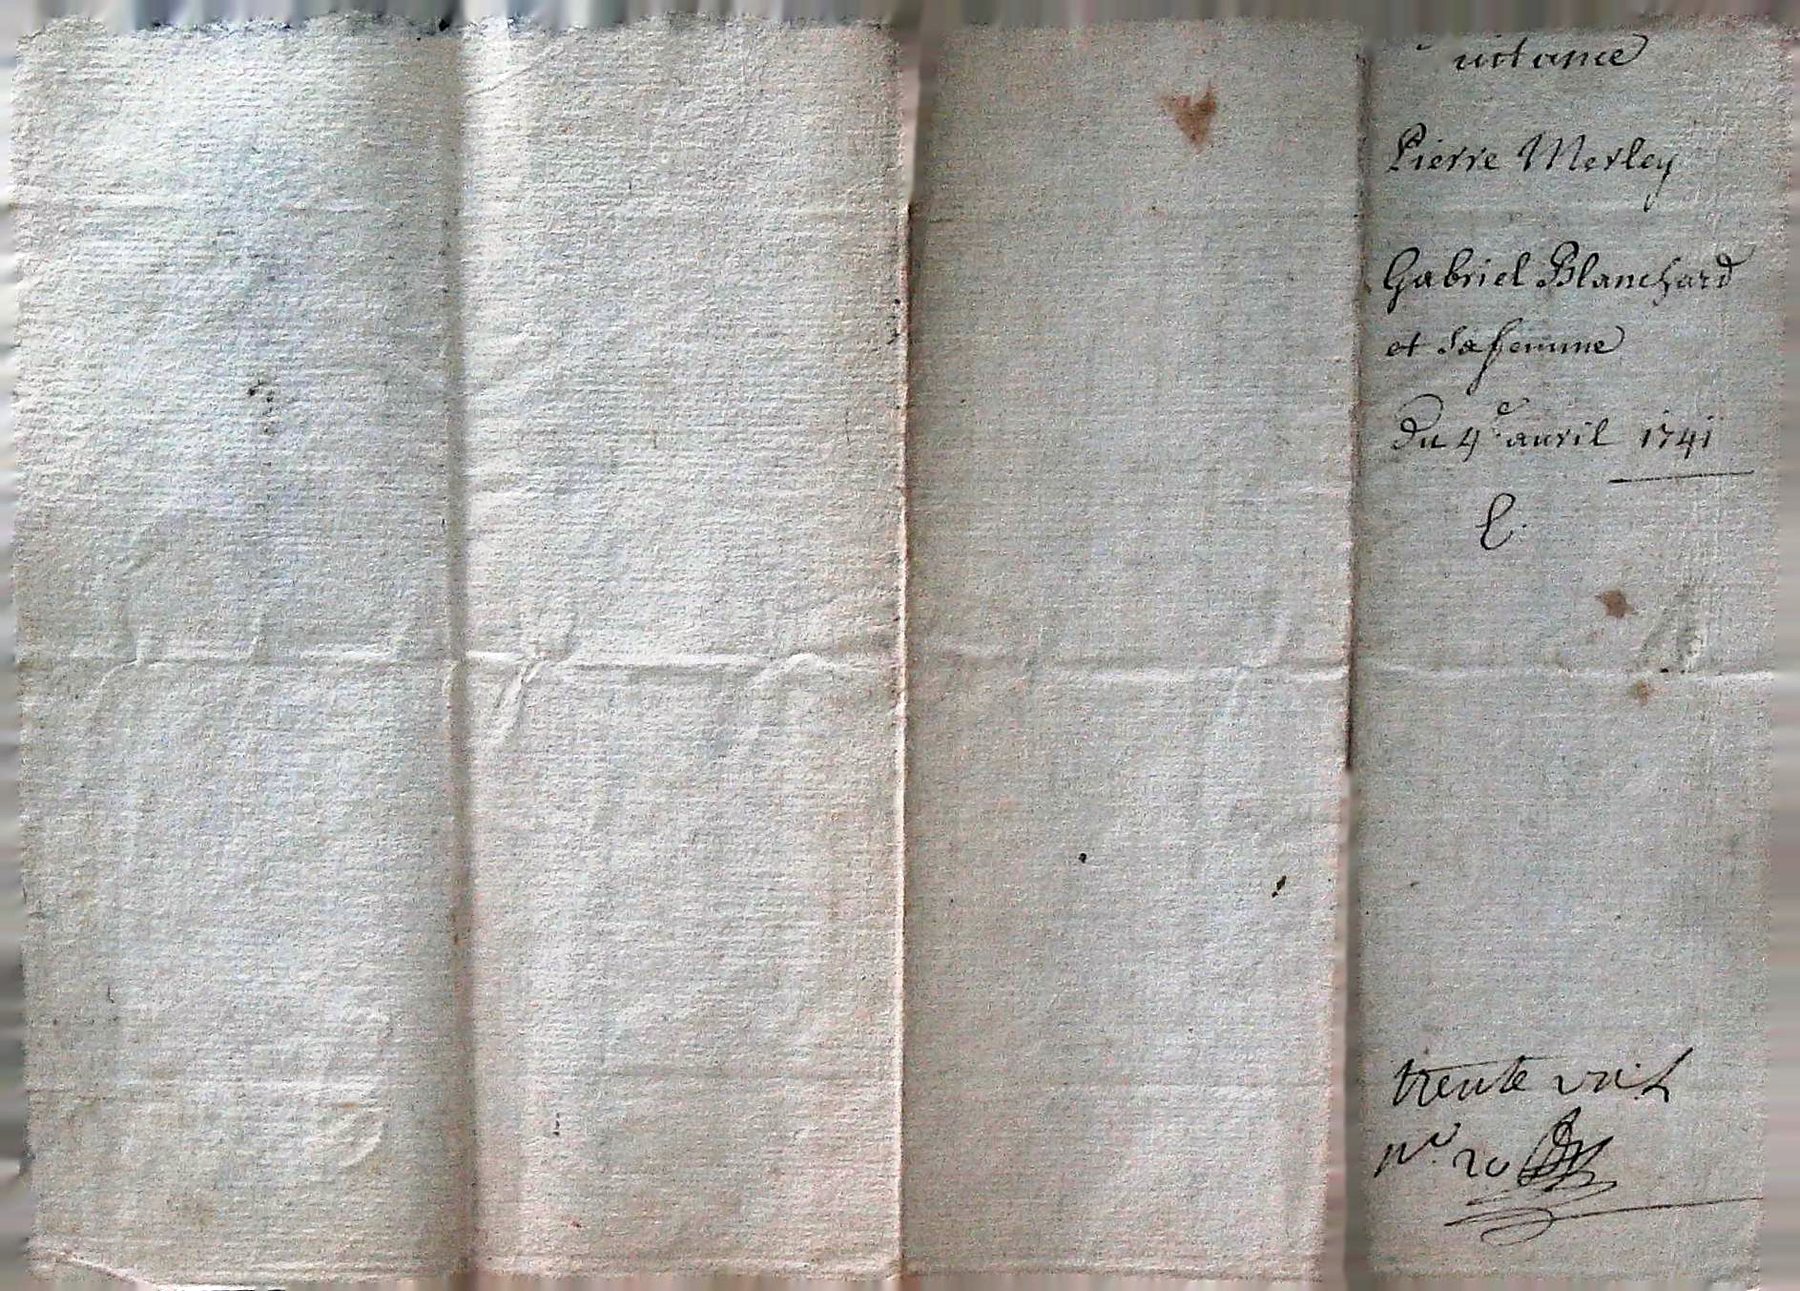 uictance
Pierre Merley
Gabriel Blanchard
et sa femme
Du 4e avril 1741
E.
trente
no. 20